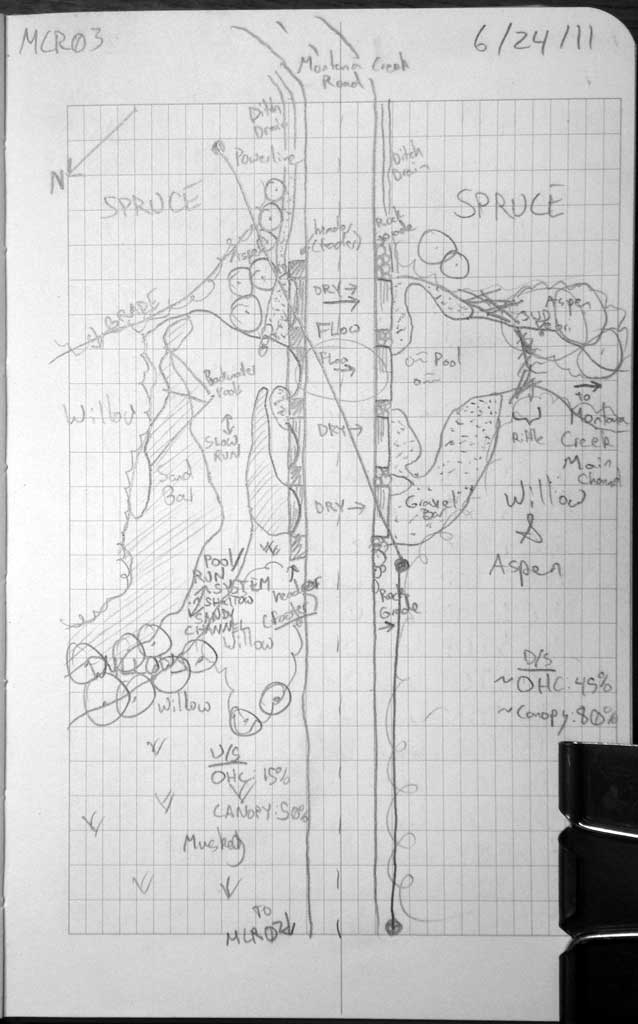 MCR03
6/24/11
Montana Creek
Road
Ditch
Drain
Powerline
Ditch
Drain
N
SPRUCE
SPRUCE
Rock
Grade
header
(footer)
Aspen
DRY →
GRADE
FLOW
Aspen
Flow
→
Pool
Backwater
Pools
Willow
SLOW
RUN
DRY →
Riffle
TO
Montana
Creek
Main
Channel
Sand
Bar
DRY →
Gravel
Bar
Willow
&
Aspen
POOL/
RUN
SYSTEM
SHALLOW
SANDY
CHANNEL
Willow
header
(footer)
Rock
Grade
Willow
D/S
~OHC: 45%
~Canopy: 80%
U/S
OHC: 15%
CANOPY: 50%
Muskeg
TO
MCR02